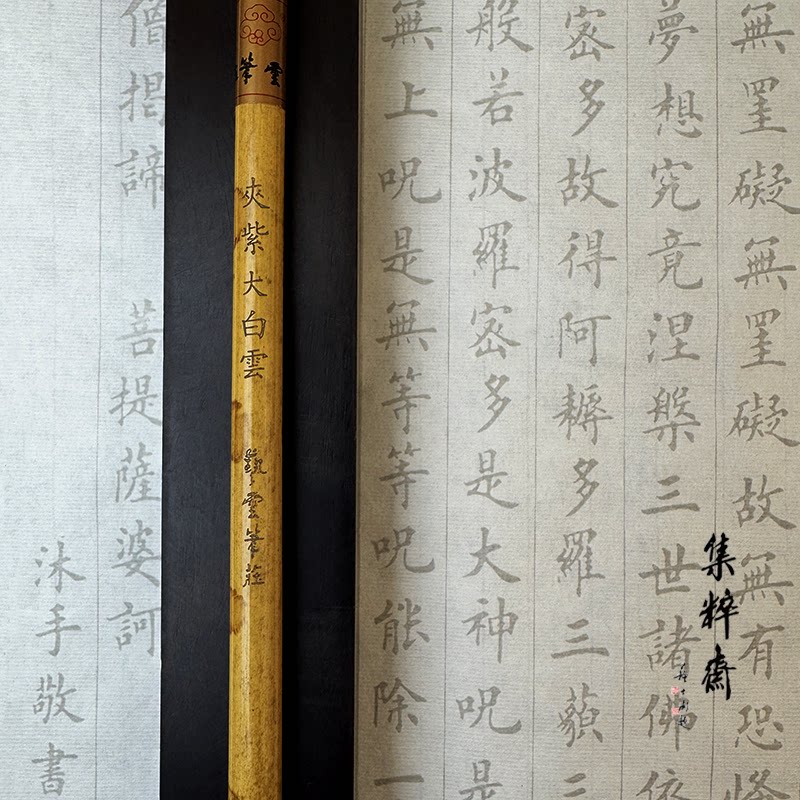 無罣礙無罣礙故無有恐
夢想究竟涅槃三世諸佛依
密多故得阿耨多羅三藐三
般若波羅密多是大神呪是
無上呪是無等等呪能除一
雲筆
夾紫大白雲
藝雲筆莊
僧揭諦 菩提薩婆訶
沐手敬書
集粹齋